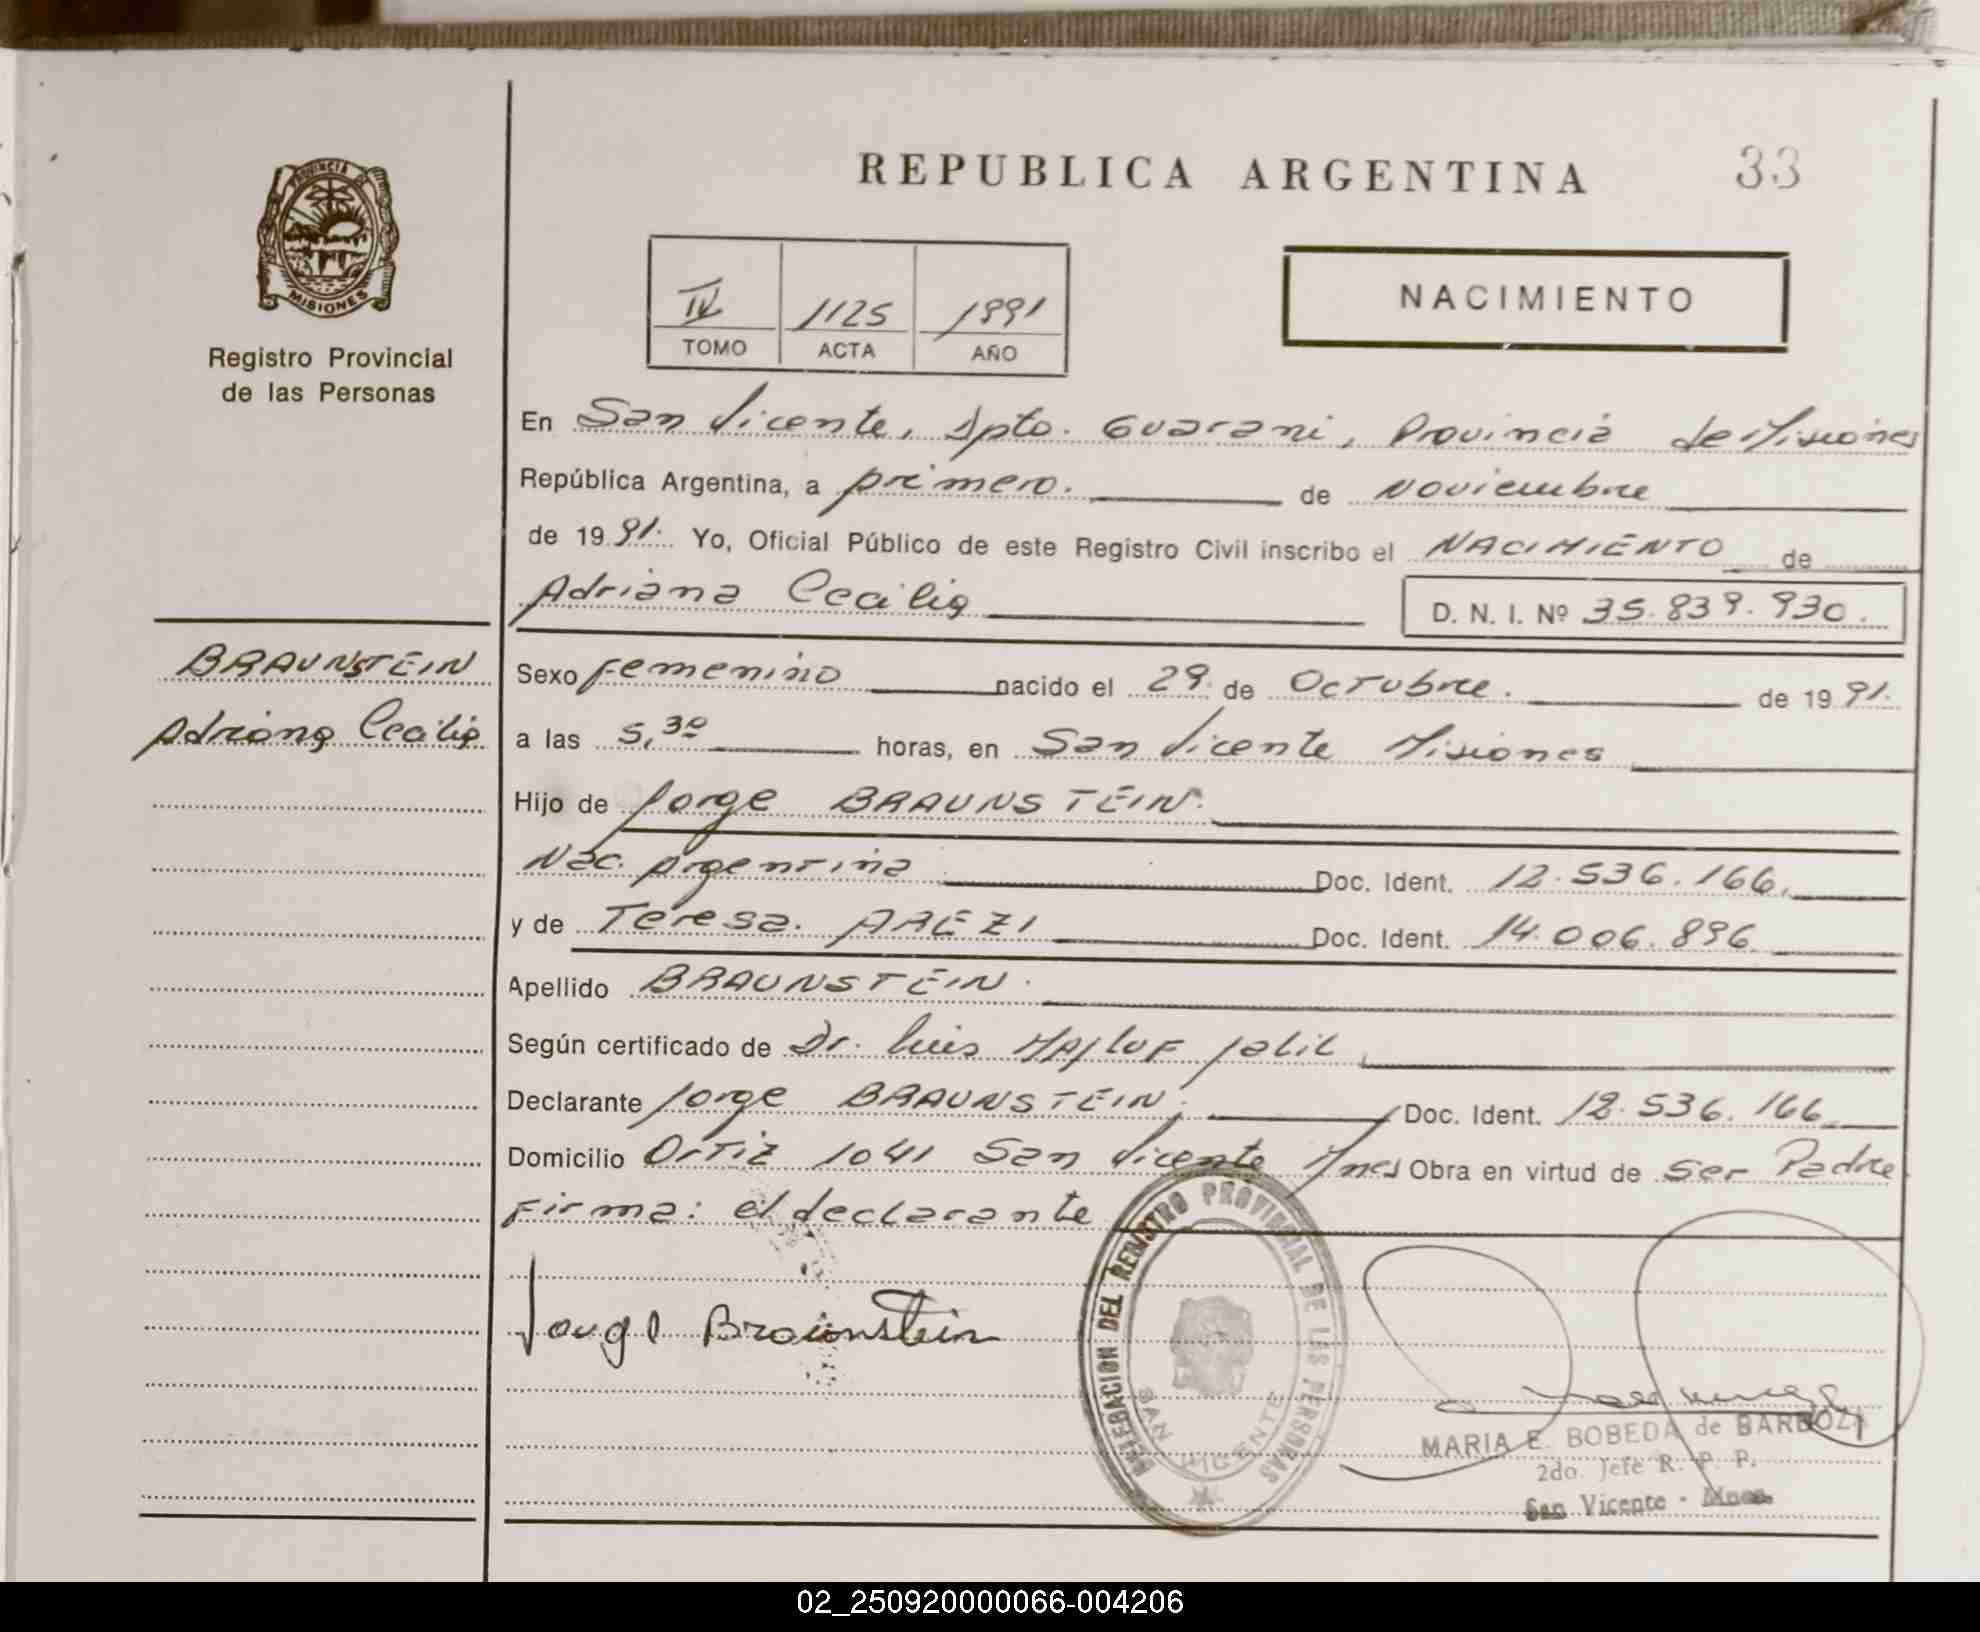 REPUBLICA ARGENTINA
33
PROVINCIA DE
MISIONES
Registro Provincial
de las Personas
IV 1125 1991
TOMO ACTA AÑO
NACIMIENTO
En San Vicente, Dpto. Guarani, Provincia de Misiones
República Argentina, a primero. de Noviembre
de 1991. Yo, Oficial Público de este Registro Civil inscribo el NACIMIENTO de
Adriana Cecilia
D. N. I. Nº 35.839.930.
BRAUNSTEIN
Adriana Cecilia
Sexo Femenino nacido el 29 de Octubre. de 1991.
a las 5,30 horas, en San Vicente Misiones
Hijo de Jorge BRAUNSTEIN.
Nac. Argentina Doc. Ident. 12.536.166.
y de Teresa. Doc. Ident. 14.006.896
Apellido BRAUNSTEIN.
Según certificado de Dr. Luis Majluf Jalil
Declarante Jorge BRAUNSTEIN, Doc. Ident. 12.536.166
Domicilio Ortiz 1041 San Vicente Mnes Obra en virtud de ser Padre
Firma: el declarante
Jorge Braunstein
DELEGACION DEL REGISTRO PROVINCIAL DE LAS PERSONAS
SAN VICENTE
MARIA E. BOBEDA de BARBOZA
2do. Jefe R. P. P.
San Vicente - Mnes.
02_250920000066-004206